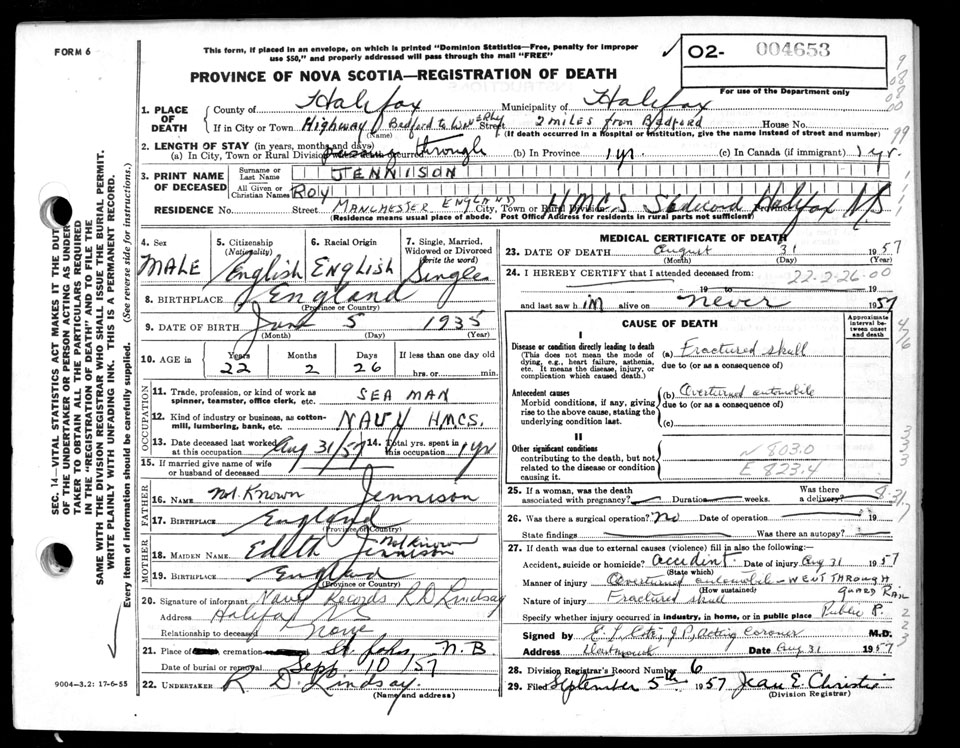 FORM 6
This form, if placed in an envelope, on which is printed "Dominion Statistics—Free, penalty for improper
use $50," and properly addressed will pass through the mail "FREE"
PROVINCE OF NOVA SCOTIA—REGISTRATION OF DEATH
02- 004653
For use of the Department only
1. PLACE OF DEATH
County of Halifax Municipality of Halifax
If in City or Town Highway Bedford to Street 2 miles from Bedford House No.
(Name) (If death occurred in a Hospital or institution, give the name instead of street and number)
2. LENGTH OF STAY (in years, months and days)
(a) In City, Town or Rural Division passing through (b) In Province 1 yr. (c) In Canada (if immigrant) 1 yr.
3. PRINT NAME OF DECEASED
Surname or Last Name JENNISON
All Given or Christian Names ROY
RESIDENCE No. Street MANCHESTER ENGLAND City, Town or Rural Division H.M.C.S. Halifax NS
(Residence means usual place of abode. Post Office Address for residents in rural parts not sufficient)
4. Sex MALE
5. Citizenship (Nationality) English
6. Racial Origin ENGLISH
7. Single, Married, Widowed or Divorced (write the word) Single
8. BIRTHPLACE England
(Province or Country)
9. DATE OF BIRTH June 5 1935
(Month) (Day) (Year)
10. AGE in Years Months Days If less than one day old
22 2 26 hrs. or min.
OCCUPATION
11. Trade, profession, or kind of work as
spinner, teamster, office clerk, etc. SEAMAN
12. Kind of industry or business, as cotton-
mill, lumbering, bank, etc. NAVY HMCS.
13. Date deceased last worked at this occupation Aug 31/57 14. Total yrs. spent in this occupation 1 yr
15. If married give name of wife
or husband of deceased
FATHER
16. NAME Not Known Jennison
17. BIRTHPLACE England
(Province or Country)
MOTHER
18. MAIDEN NAME Edith Not Known Jennison
19. BIRTHPLACE England
(Province or Country)
20. Signature of informant Navy Records R D Lindsay
Address Halifax NS
Relationship to deceased None
21. Place of cremation St. John N.B
Date of burial or removal Sept 10/57
22. UNDERTAKER R. D. Lindsay.
(Name and address)
9004—3.2: 17-6-55
SEC. 14—VITAL STATISTICS ACT MAKES IT THE DUTY
OF THE UNDERTAKER OR PERSON ACTING AS UNDER-
TAKER TO OBTAIN ALL THE PARTICULARS REQUIRED
IN THE "REGISTRATION OF DEATH" AND TO FILE THE
SAME WITH THE DIVISION REGISTRAR WHO SHALL ISSUE THE BURIAL PERMIT.
WRITE PLAINLY WITH UNFADING INK. THIS IS A PERMANENT RECORD.
Every item of information should be carefully supplied. (See reverse side for instructions.)
MEDICAL CERTIFICATE OF DEATH
23. DATE OF DEATH August 31 1957
(Month) (Day) (Year)
24. I HEREBY CERTIFY that I attended deceased from:
22-2-26-00
19 to 19
and last saw h im alive on never 1957
CAUSE OF DEATH
Approximate interval between onset and death
I
Disease or condition directly leading to death
(This does not mean the mode of dying, e.g., heart failure, asthenia, etc. It means the disease, injury, or complication which caused death.)
(a) Fractured skull
due to (or as a consequence of)
Antecedent causes
Morbid conditions, if any, giving rise to the above cause, stating the underlying condition last.
(b) Overturned automobile
due to (or as a consequence of)
(c)
II
Other significant conditions
contributing to the death, but not related to the disease or condition causing it.
N 803.0
E 823.4
25. If a woman, was the death associated with pregnancy? Duration weeks. Was there a delivery?
26. Was there a surgical operation? No Date of operation 19
State findings Was there an autopsy?
27. If death was due to external causes (violence) fill in also the following:
Accident, suicide or homicide? accident Date of injury Aug 31 1957
(State which)
Manner of injury Overturned automobile - WENT THROUGH
(How sustained) GUARD RAIL
Nature of injury Fractured skull
Specify whether injury occurred in industry, in home, or in public place Public P.
Signed by J P, Acting Coroner M.D.
Address Dartmouth Date Aug 31 1957
28. Division Registrar's Record Number 6
29. Filed September 5th 1957 Jean E. Christie
(Division Registrar)